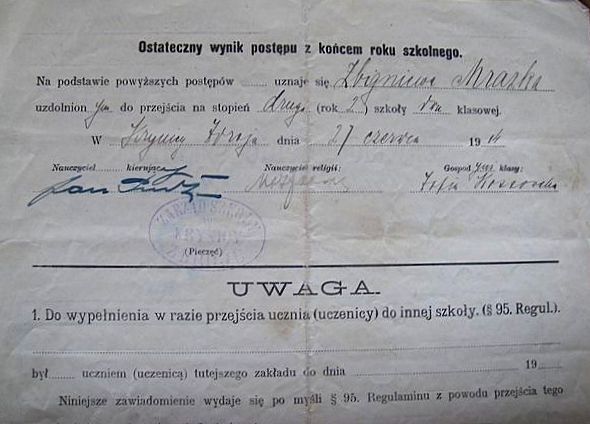 Ostateczny wynik postępu z końcem roku szkolnego.
Na podstawie powyższych postępów ........ uznaje się Zbigniewa Mrazka
uzdolnionym do przejścia na stopień drugi (rok 2) szkoły klasowej.
W Krynicy Zdroju dnia 27 czerwca 19
Nauczyciel kierujący Nauczyciel religii: Gospod klasy:
Jan
ZARZĄD SZKOŁY
(Pieczęć)
UWAGA.
1. Do wypełnienia w razie przejścia ucznia (uczenicy) do innej szkoły. (§ 95. Regul.).
był ........ uczniem (uczenicą) tutejszego zakładu do dnia 19
Niniejsze zawiadomienie wydaje się po myśli § 95. Regulaminu z powodu przejścia tego